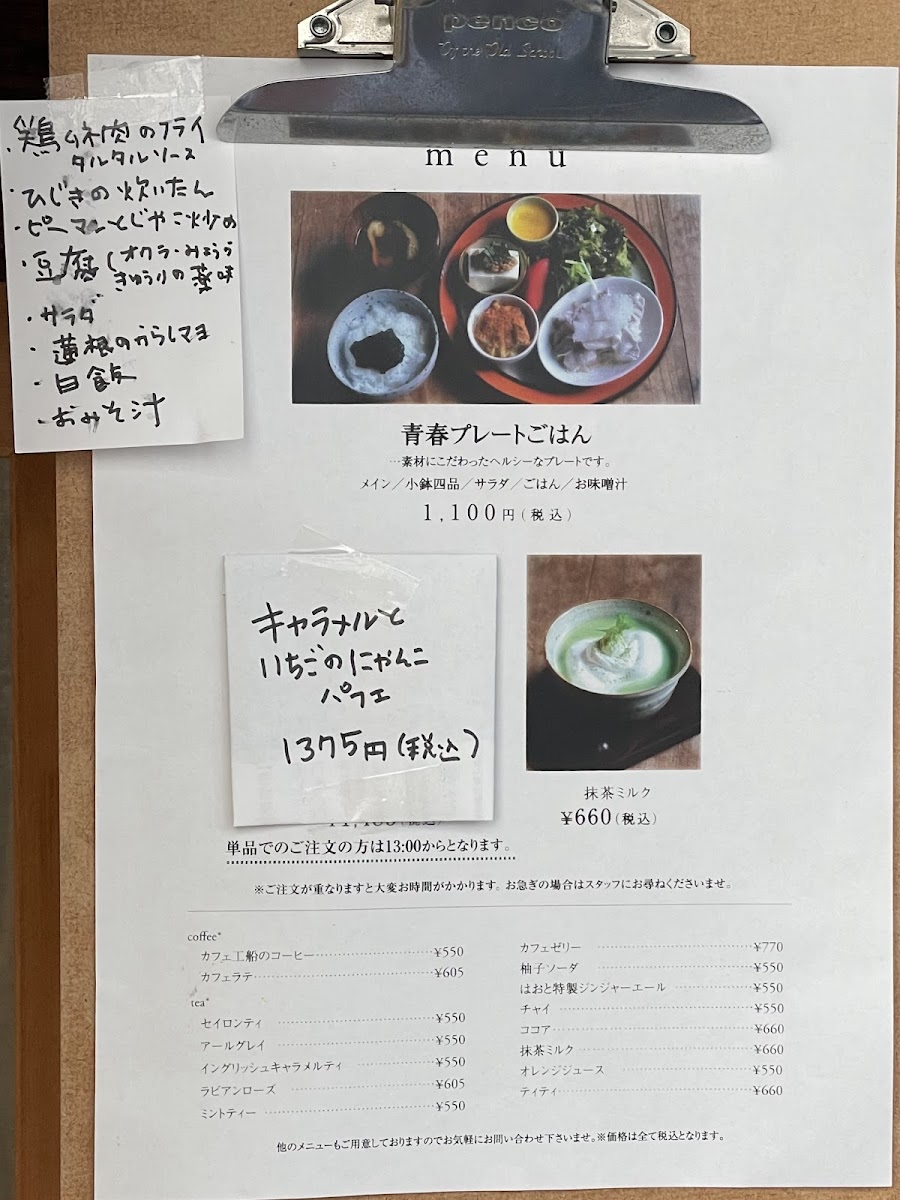 penco
menu
・鶏ムネ肉のフライ
タルタルソース
・ひじきの炊いたん
・ピーマンとじゃこ炒め
・豆腐(オクラ・みょうが
きゅうりの薬味
・サラダ
・蓮根のからしマヨ
・白飯
・おみそ汁
青春プレートごはん
…素材にこだわったヘルシーなプレートです。
メイン／小鉢四品／サラダ／ごはん／お味噌汁
1,100円(税込)
キャラメルと
いちごのにゃんこ
パフェ
1375円(税込)
抹茶ミルク
¥660(税込)
単品でのご注文の方は13:00からとなります。
※ご注文が重なりますと大変お時間がかかります。お急ぎの場合はスタッフにお尋ねくださいませ。
coffee*
カフェ工船のコーヒー……¥550
カフェラテ……¥605
tea*
セイロンティ……¥550
アールグレイ……¥550
イングリッシュキャラメルティ……¥550
ラビアンローズ……¥605
ミントティー……¥550
カフェゼリー……¥770
柚子ソーダ……¥550
はおと特製ジンジャーエール……¥550
チャイ……¥550
ココア……¥660
抹茶ミルク……¥660
オレンジジュース……¥550
ティティ……¥660
他のメニューもご用意しておりますのでお気軽にお問い合わせ下さいませ。※価格は全て税込となります。